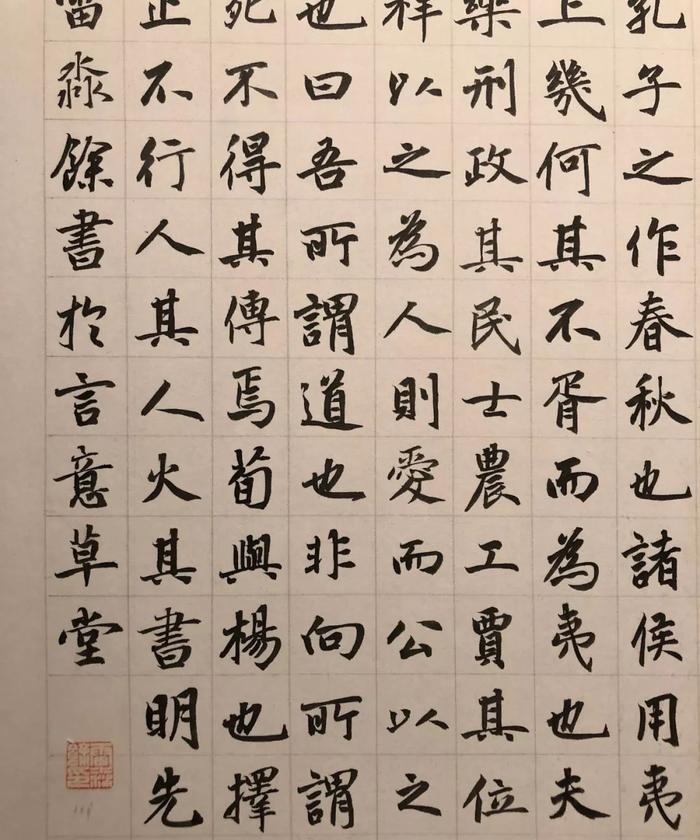 孔子之作春秋也諸侯用夷
上幾何其不胥而為夷也夫
樂刑政其民士農工賈其位
祥以之為人則愛而公以之
也曰吾所謂道也非向所謂
死不得其傳焉荀與楊也擇
止不行人其人火其書明先
雷淼餘書於言意草堂